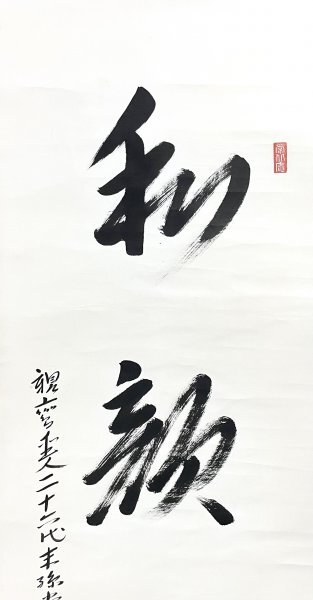 和
顔
親鸞聖人二十六代末孫